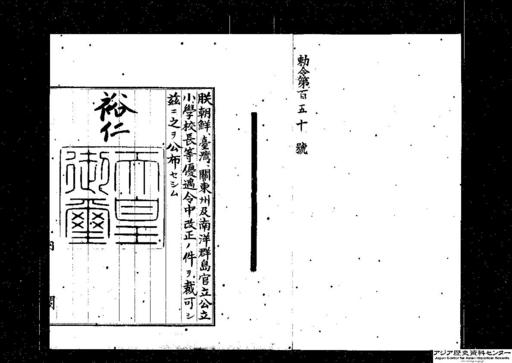 勅令第百五十號
朕朝鮮、臺灣、關東州及南洋群島官立公立
小學校長等優遇令中改正ノ件ヲ裁可シ
茲ニ之ヲ公布セシム
裕仁
天皇
御璽
内
閣
アジア歴史資料センター
Japan Center for Asian Historical Records